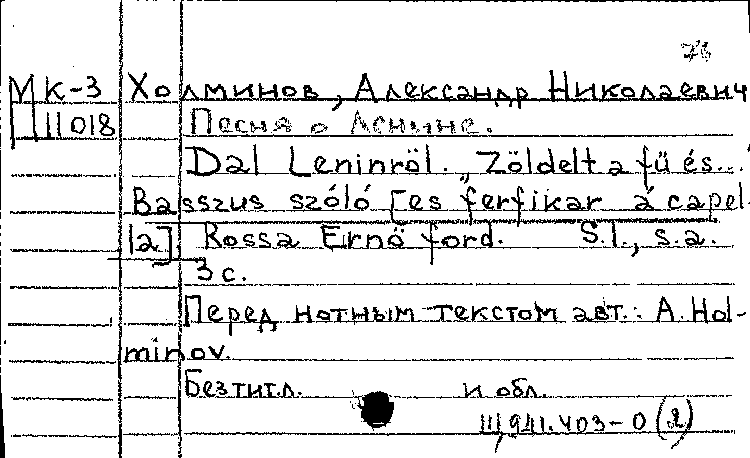 76
МК-3 Холминов, Александр Николаевич
Ш 11018 Песня о Ленине.
Dal Leninröl. „Zöldelt a fű és..."
Basszus szóló [es ferfikar á capel-
la]. Rossa Ernő ford. S.l., s.a.
3 с.
Перед нотным текстом авт.: A. Hol-
minov.
Без тит.л. и обл.
Ш,941.403-0 (2)